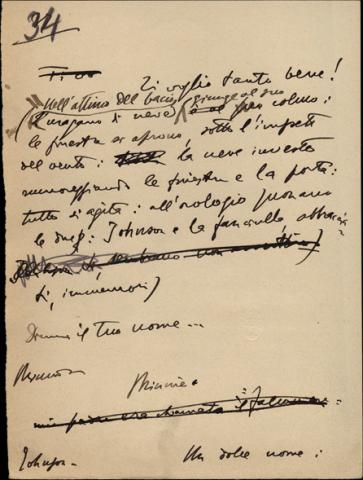 34
Ti vo
Ti voglio tanto bene!
Nell'attimo del bacio (giunge al suo
(l'uragano di neve è al suo colmo:
le finestre si aprono sotto l'impeto
del vento: la neve investe
le finestre e la porta:
tutto si agita: all'orologio suonano
le due: Johnson e la fanciulla abbracciati
non
ti, immemori)
Dimmi il tuo nome...
Minnie
mio padre era chiamato il
Johnson - Un dolce nome: